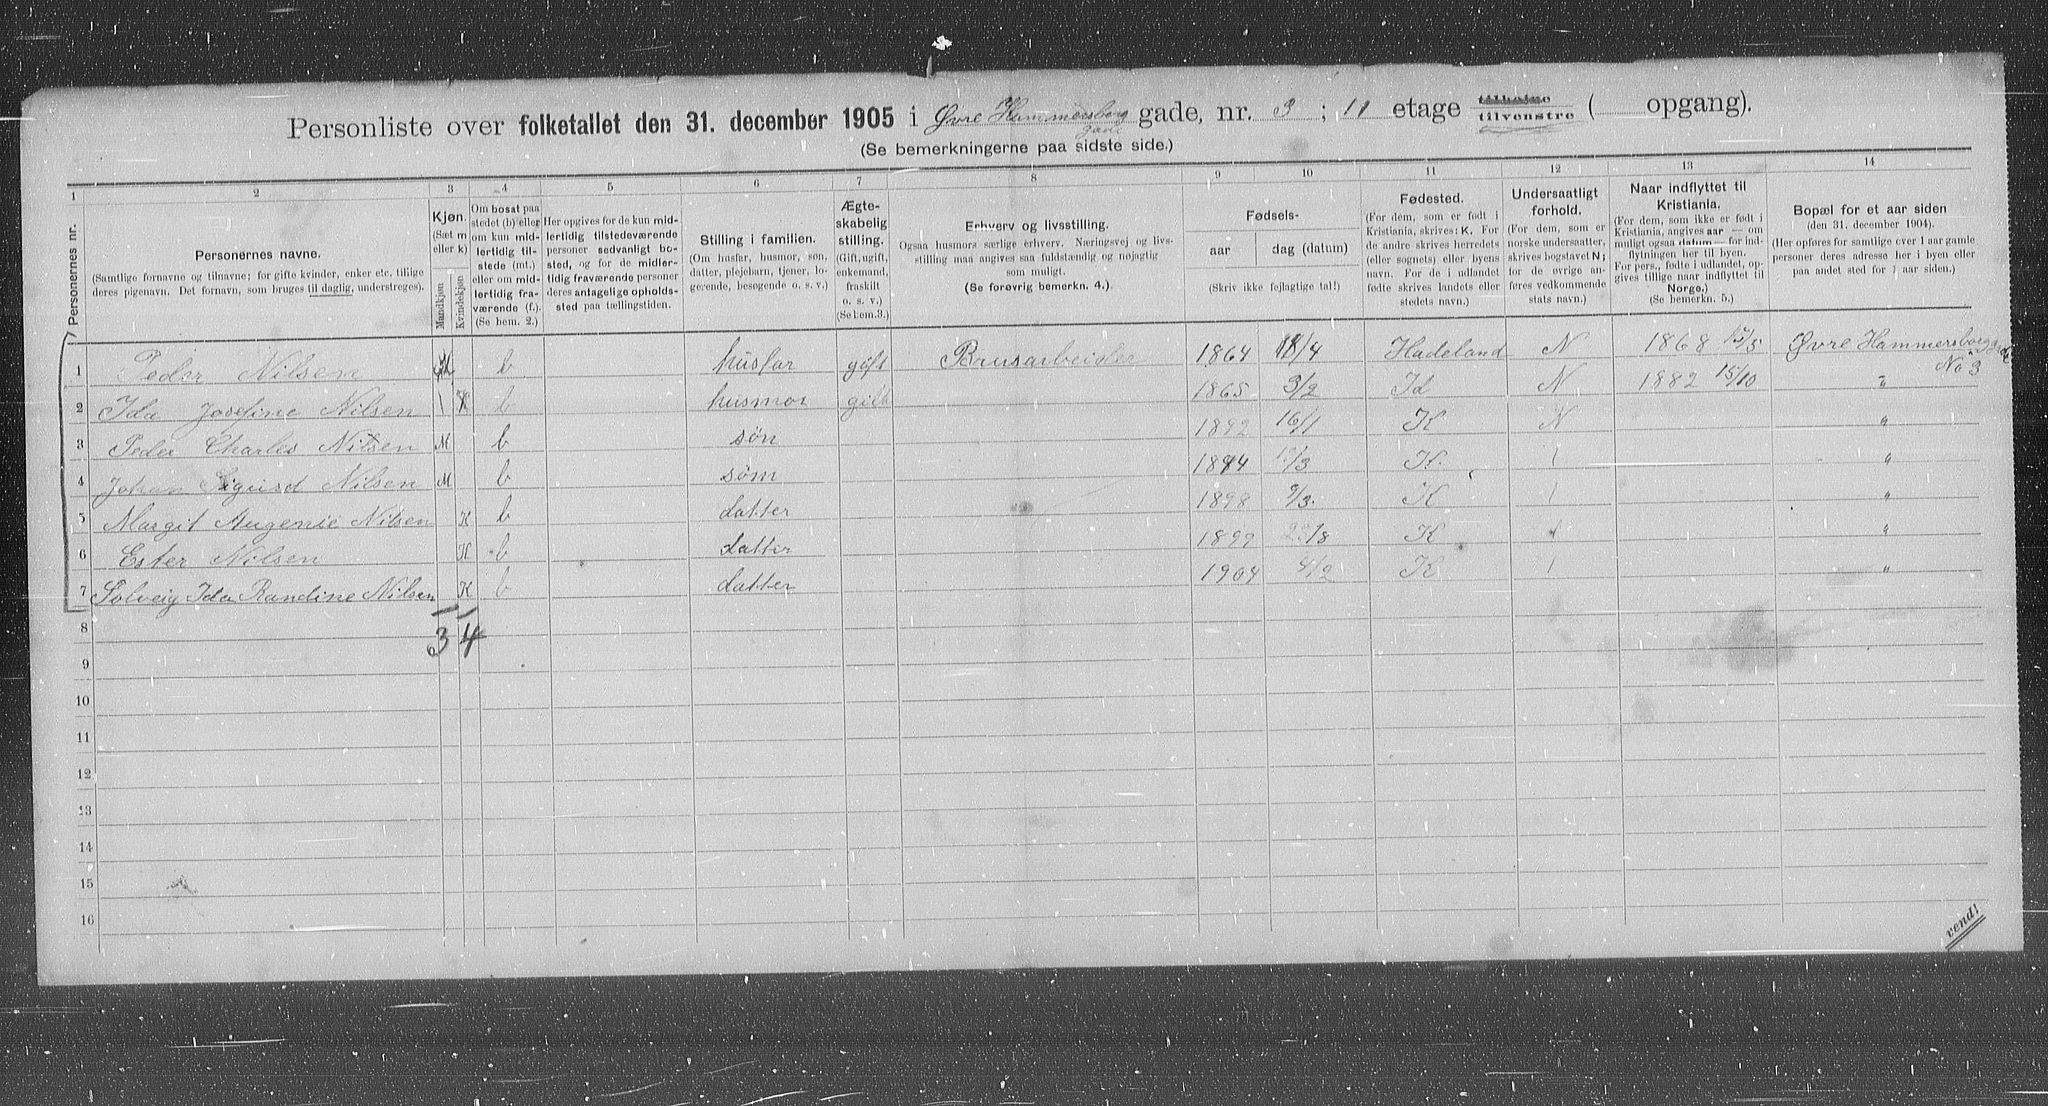 Personliste over folketallet den 31. december 1905 i Øvre Hammersborg gade gade, nr. 3 ; 11 etage tilhøire tilvenstre ( opgang).
(Se bemerkningerne paa sidste side.)
1 2 3 4 5 6 7 8 9 10 11 12 13 14
Personernes nr.
Personernes navne.
(Samtlige fornavne og tilnavne; for gifte kvinder, enker etc. tillige
deres pigenavn. Det fornavn, som bruges til daglig, understreges).
Kjøn.
(Sæt m
eller k)
Mandkjøn
Kvindekjøn
Om bosat paa
stedet (b) eller
om kun mid-
lertidig til-
stede (mt.)
eller om mid-
lertidig fra-
værende (f.).
(Se bem. 2.)
Her opgives for de kun mid-
lertidig tilstedeværende
personer sedvanligt bo-
sted, og for de midler-
tidig fraværende personer
deres antagelige opholds-
sted paa tællingstiden.
Stilling i familien.
(Om husfar, husmor, søn,
datter, plejebarn, tjener, lo-
gerende, besøgende o. s. v.)
Ægte-
skabelig
stilling.
(Gift, ugift,
enkemand,
fraskilt
o. s. v.)
(Se bem.3.)
Erhverv og livsstilling.
Ogsaa husmors særlige erhverv. Næringsvej og livs-
stilling maa angives saa fuldstændig og nøjagtig
som muligt.
(Se forøvrig bemerkn. 4.)
Fødsels-
aar
dag (datum)
(Skriv ikke fejlagtige tal!)
Fødested.
(For dem, som er født i
Kristiania, skrives: K. For
de andre skrives herredets
(eller sognets) eller byens
navn. For de i udlandet
fødte skrives landets eller
stedets navn.)
Undersaatligt
forhold.
(For dem, som er
norske undersaatter,
skrives bogstavet N;
for de øvrige an-
føres vedkommende
stats navn.)
Naar indflyttet til
Kristiania.
(For dem, som ikke er født i
Kristiania, angives aar — om
muligt ogsaa datum — for ind-
flytningen her til byen.
For pers., fødte i udlandet, op-
gives tillige naar indflyttet til
Norge.)
(Se bemerkn. 5.)
Bopæl for et aar siden
(den 31. december 1904).
(Her opføres for samtlige over 1 aar gamle
personer deres adresse her i byen eller
paa andet sted for 1 aar siden.)
1 Peder Nilsen M b husfar gift Brusarbeider 1864 18/4 Hadeland N 1868 15/5 Øvre Hammersborggade No 3
2 Ida Josefine Nilsen K b husmor gift 1865 3/2 Id N 1882 15/10 "
3 Peder Charles Nilsen M b søn 1892 16/1 K N "
4 Johan Sigurd Nilsen M b søm 1894 /3 K. "
5 Margit Augenie Nilsen K b datter 1898 9/3. K "
6 Ester Nilsen K b datter 1899 /8 K "
7 Solveig Ida Randine Nilsen K b datter 1904 4/2 K "
3 4
8
9
10
11
12
13
14
15
16
vend!